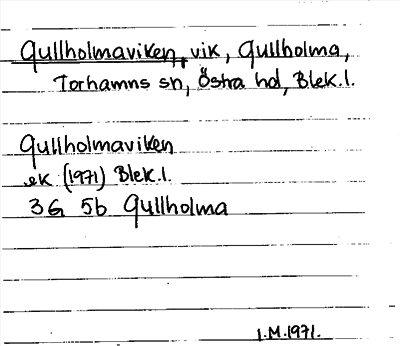 Gullholmaviken, vik, Gullholma,
Torhamns sn, Östra hd, Blek.l.
Gullholmaviken
ek (1971) Blek.l.
3G 5b Gullholma
I.M.1971.